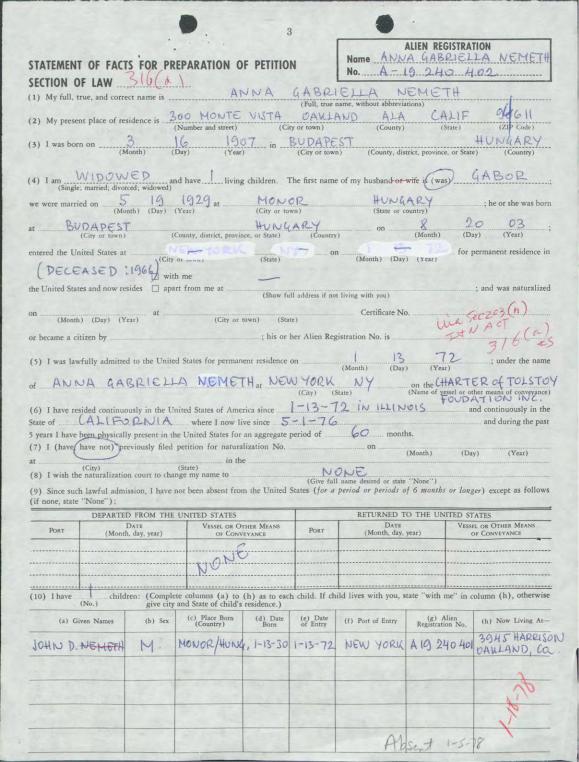 3
ALIEN REGISTRATION
Name ANNA GABRIELLA NEMETH
No. A-19 240 402
STATEMENT OF FACTS FOR PREPARATION OF PETITION
SECTION OF LAW 316(a)
(1) My full, true, and correct name is ANNA GABRIELLA NEMETH
(Full, true name, without abbreviations)
(2) My present place of residence is 300 MONTE VISTA OAKLAND ALA CALIF 94611
(Number and street) (City or town) (County) (State) (ZIP Code)
(3) I was born on 3 16 1907 in BUDAPEST HUNGARY
(Month) (Day) (Year) (City or town) (County, district, province, or State) (Country)
(4) I am WIDOWED and have 1 living children. The first name of my husband or wife is (was) GABOR ;
(Single; married; divorced; widowed)
we were married on 5 19 1929 at MONOR HUNGARY ; he or she was born
(Month) (Day) (Year) (City or town) (State or country)
at BUDAPEST HUNGARY on 8 20 03 ;
(City or town) (County, district, province, or State) (Country) (Month) (Day) (Year)
entered the United States at NEW YORK NY on 1 72 for permanent residence in
(City or town) (State) (Month) (Day) (Year)
(DECEASED : 1966) with me
the United States and now resides apart from me at ; and was naturalized
(Show full address if not living with you)
on at Certificate No.
(Month) (Day) (Year) (City or town) (State)
via Sec 203(h)
I+N ACT
316(a)
or became a citizen by ; his or her Alien Registration No. is
(5) I was lawfully admitted to the United States for permanent residence on 1 13 72 ; under the name
(Month) (Day) (Year)
of ANNA GABRIELLA NEMETH at NEW YORK NY on the CHARTER OF TOLSTOY
(City) (State) (Name of vessel or other means of conveyance)
FOUDATION INC.
(6) I have resided continuously in the United States of America since 1-13-72 IN ILLINOIS and continuously in the
State of CALIFORNIA where I now live since 5-1-76 and during the past
5 years I have been physically present in the United States for an aggregate period of 60 months.
(7) I (have) (have not) previously filed petition for naturalization No. on
(Month) (Day) (Year)
at in the
(City) (State)
(8) I wish the naturalization court to change my name to NONE
(Give full name desired or state "None")
(9) Since such lawful admission, I have not been absent from the United States (for a period or periods of 6 months or longer) except as follows
(if none, state "None"):
DEPARTED FROM THE UNITED STATES RETURNED TO THE UNITED STATES
PORT DATE (Month, day, year) VESSEL OR OTHER MEANS OF CONVEYANCE PORT DATE (Month, day, year) VESSEL OR OTHER MEANS OF CONVEYANCE
NONE
(10) I have 1 children: (Complete columns (a) to (h) as to each child. If child lives with you, state "with me" in column (h), otherwise
(No.) give city and State of child's residence.)
(a) Given Names (b) Sex (c) Place Born (Country) (d) Date Born (e) Date of Entry (f) Port of Entry (g) Alien Registration No. (h) Now Living At—
JOHN D. NEMETH M MONOR/HUNG. 1-13-30 1-13-72 NEW YORK A19 240 401 3945 HARRISON
OAKLAND, Ca.
1-18-78
Absent 1-5-78